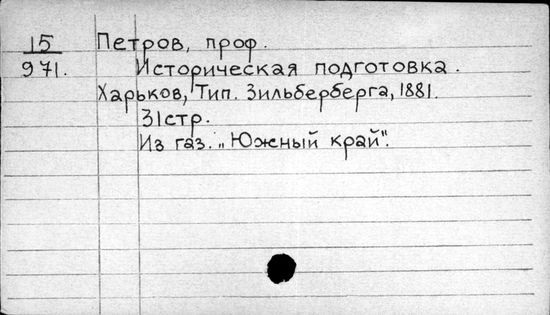 15 Петров, проф.
971. Историческая подготовка.
Харьков, Тип. Зильберберга, 1881.
31стр.
Из газ. „Южный край".